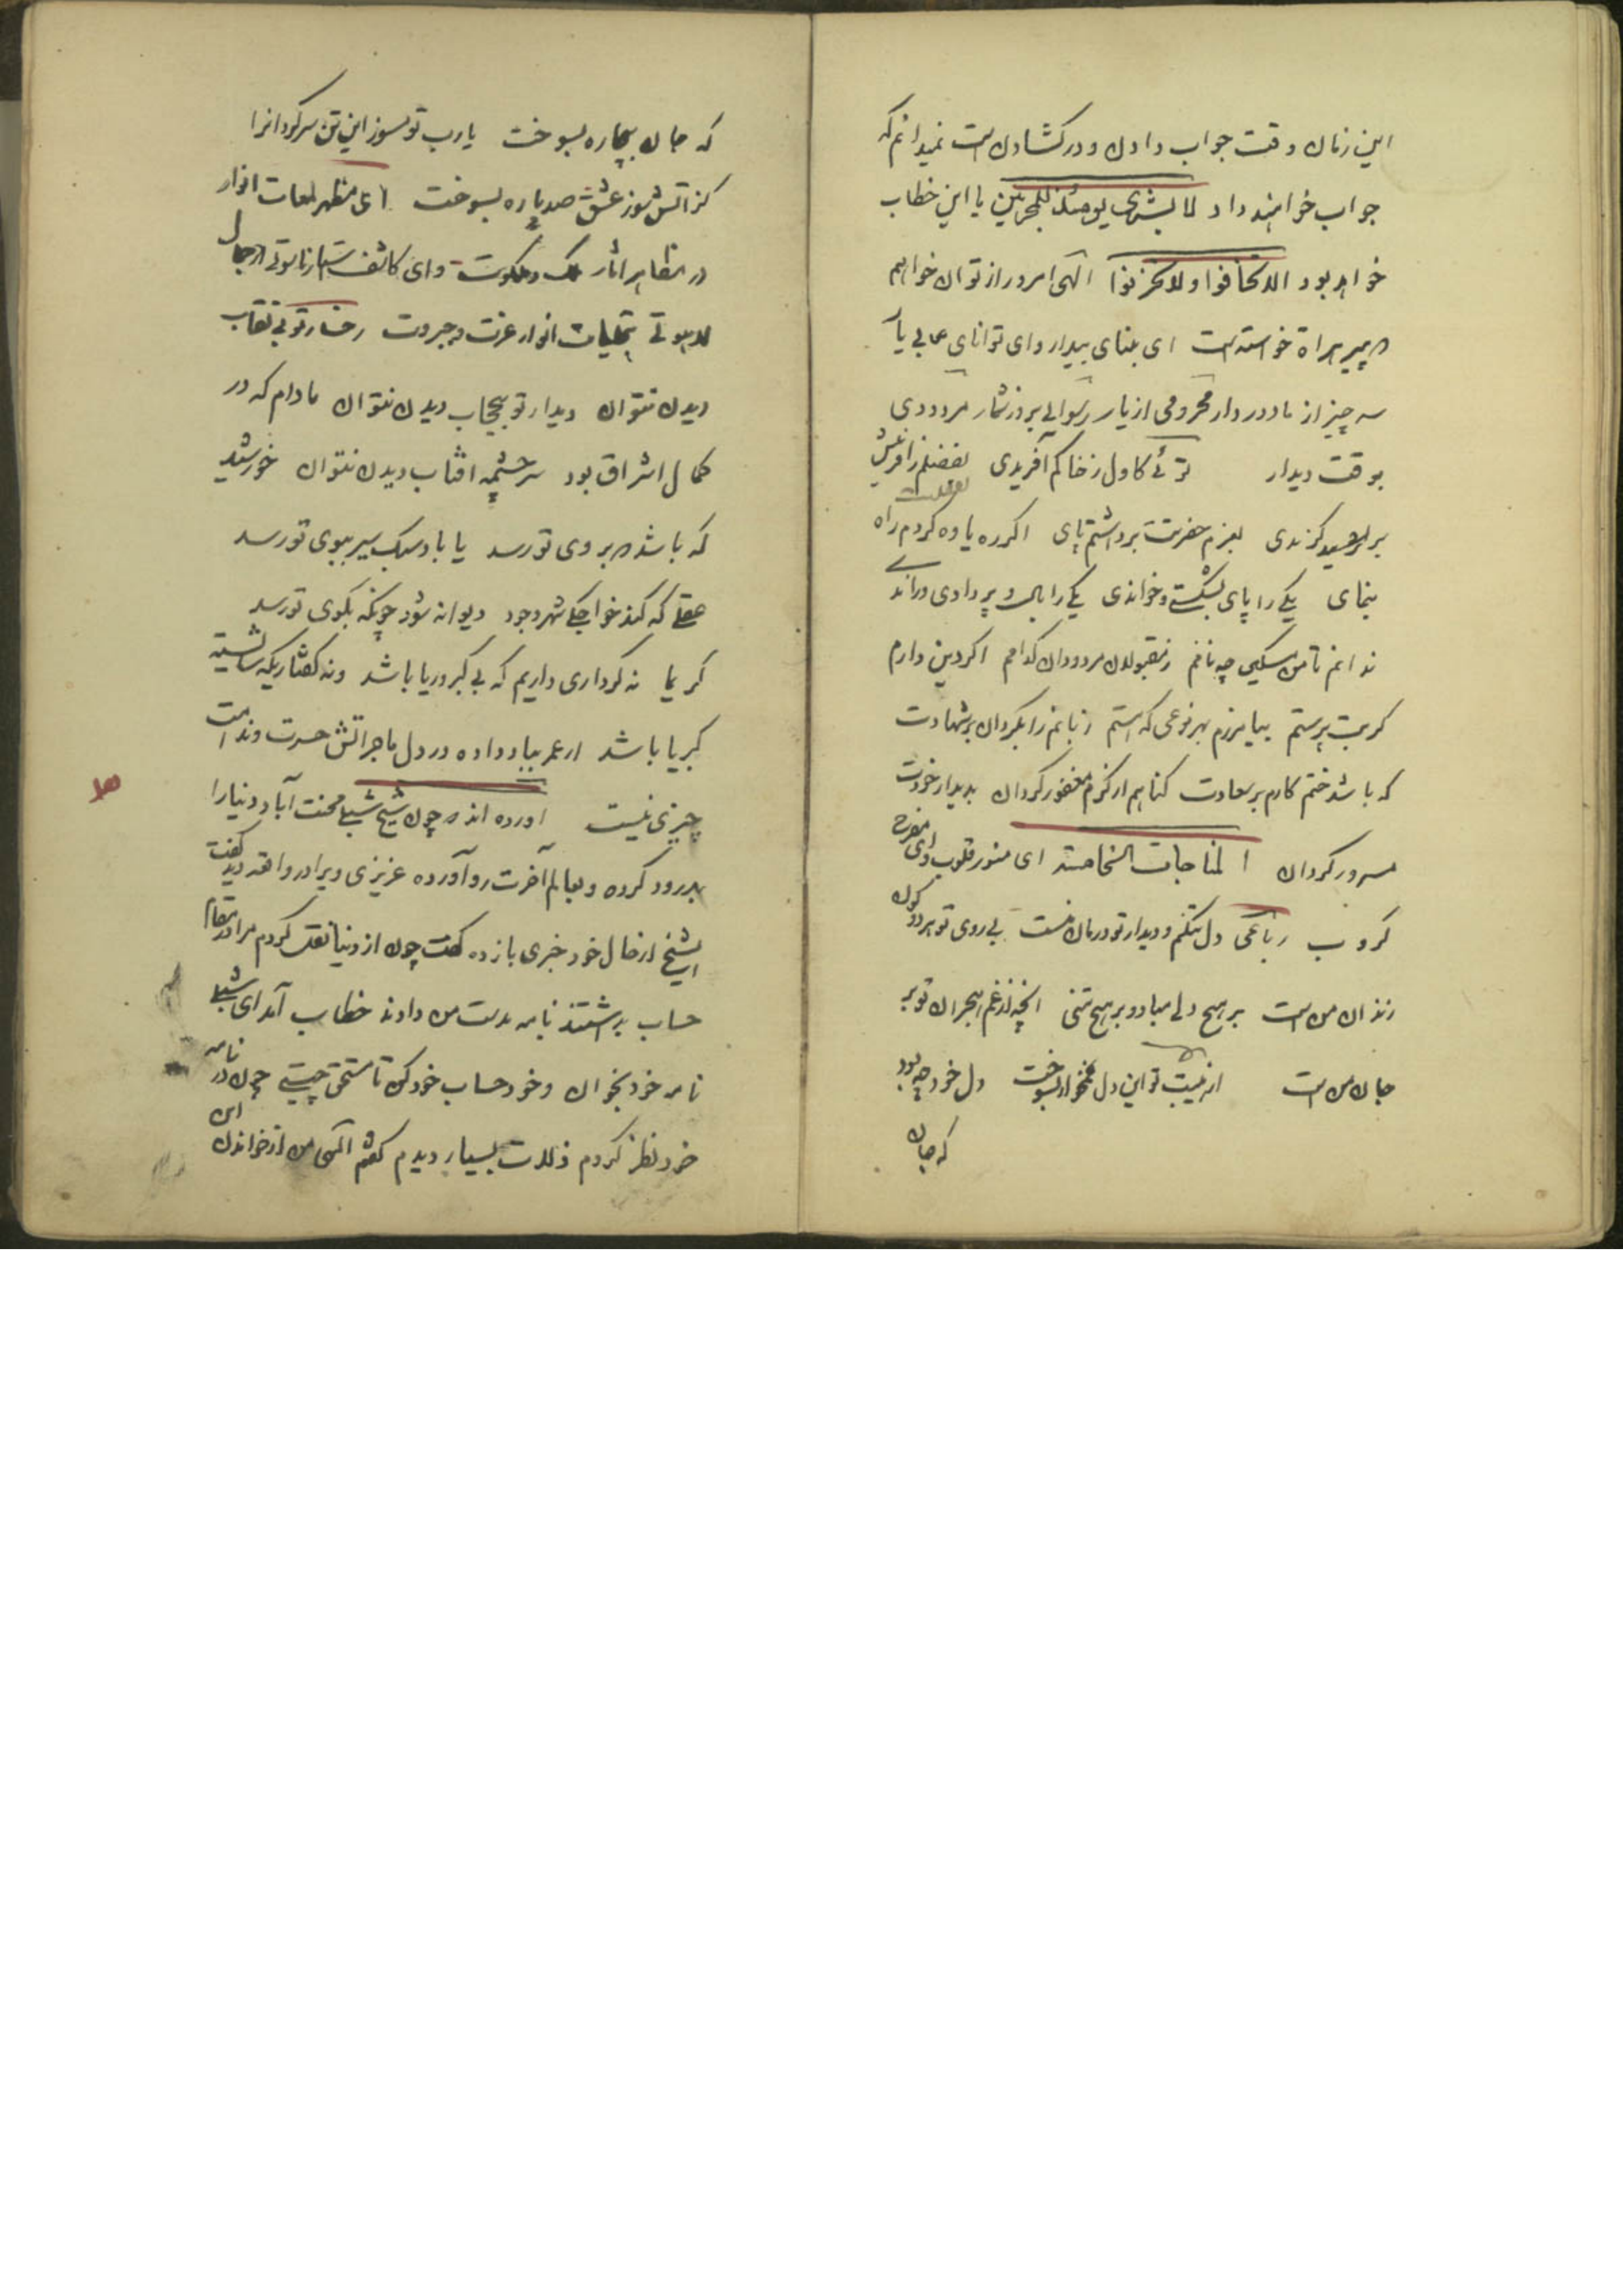 این زمان وقت جواب دادن و در کشادن است نمیدانم که
جواب خواهند داد لا بشری یومئذ للمجرمین یا این خطاب
خواهد بود الا تخافوا ولا تحزنوا الهی امروز از تو آن خواهیم
که پیر هراة خواسته است ای بینای بیدار و ای توانای بی یار
سه چیز از ما دور دار محرومی از یار رسوایی بروز شمار مردودی
بوقت دیدار توئی کاول ز خاکم آفریدی بفضلم ز افرینش
بر گزیدی بعزم حضرتت برداشتم پای اگر ره یاوه کردم راه
بنمای یکی را پای بشکستی و خواندی یکی را بال و پر دادی و راندی
ندانم تا من مسکین چه نامم ز مقبولان مردودان کدامم اگر دین دارم
گر بت پرستم بیامرزم بهر نوعی که هستم زبانم را بگردان بر شهادت
که باشد ختم کارم بر سعادت کناهم از کرم مغفور کردان بدیدار خودت
مسرور کردان المناجات الخامسة ای منور قلوب وای مفرح
کروب رباعی دل تنگم و دیدار تو درمان منست بی روی تو هر دو کون
زندان من است بر هیچ دلی مبادو بر هیچ تنی انچه از غم هجران تو بر
جان من است از هیبت تو این دل غمخوار بسوخت دل خود چه بود
که جان
که جان بیچاره بسوخت یارب تو مسوز این تن سرکردانرا
کز اتش سوز عشق صد پاره بسوخت ای مظهر لمعات انوار
در مظاهر اثار ملک و ملکوت وای کاشف استار ناسوتی از جمال
لاهوتی بتجلیات انوار عزت و جبروت رخسار تو بی نقاب
دیدن نتوان دیدار تو بیحجاب دیدن نتوان مادام که در
کمال اشراق بود سرچشمه افتاب دیدن نتوان خورشید
که باشد که بروی تو رسد یا باد سبک سیر ببوی تو رسد
عقلی که کند خواجکی شهر وجود دیوانه شود چونکه بکوی تو رسد
کریما نه کرداری داریم که بی کبر و ریا باشد و نه کفتاریکه شایسته
کبریا باشد از عمر بباد داده در دل ما جز اتش حسرت و ندامت
چیزی نیست اورده اند که چون شیخ شبلی محنت آباد دنیا را
بدرود کرده و بعالم آخرت رو آورده عزیزی ویرا در واقعه دید کفت
ای شیخ از حال خود خبری باز ده کفت چون از دنیا نقل کردم مرا در مقام
حساب بداشتند نامه بدست من دادند خطاب آمد ای شبلی
نامه خود بخوان و خود حساب خود کن تا مستحق چیستی چون در نامه
خود نظر کردم ذلات بسیار دیدم کفتم الهی من از خواندن این